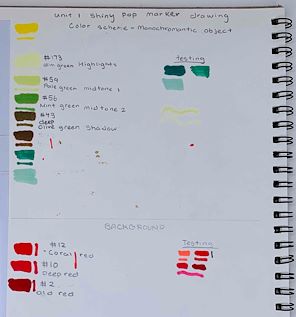 unit 1 shiny pop marker drawing
Color scheme - Monochromatic object
#173
Dim green Highlights
Testing
#59
Pale green midtone 1
#56
Mint green midtone 2
#43
deep
Olive green Shadow
BACKGROUND
#12
- Coral red
Testing
#10
Deep red
#2
Old red